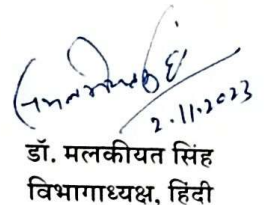 2.11.2023
डॉ. मलकीयत सिंह
विभागाध्यक्ष, हिंदी